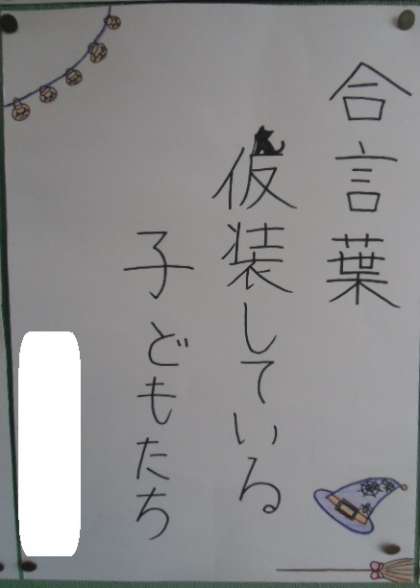 合言葉
仮装している
子どもたち